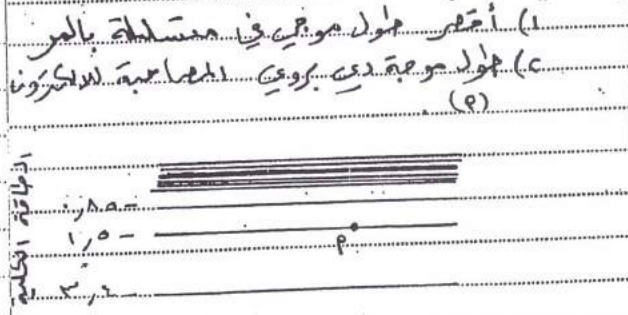 ١) أقصر طول موجي في متسلسلة بالمر
٢) طول موجة دي بروي المصاحبة للالكترون
(م)
الطاقة الكلية
٠,٨٥-
١,٥-
م
٣,٤-